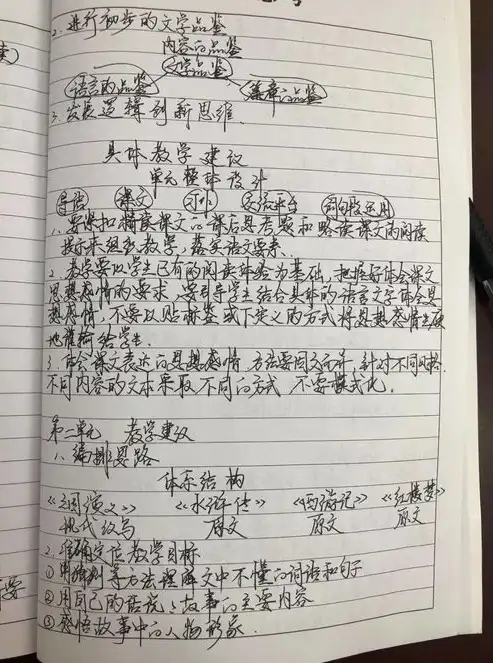 2. 进行初步的文学品鉴
内容的品鉴
文学品鉴
语言的品鉴 篇章的品鉴
3. 发展逻辑创新思维.
具体教学建议
单元整体设计
导语 课文 习作 交流平台 词句段运用
1. 要紧扣精读课文的课后思考题和略读课文的阅读
提示来组织教学,落实语文要素.
2. 教学要以学生已有的阅读体验为基础,把握好体会课文
思想感情的要求,要引导学生结合具体的语言文字体会思
想感情,不要以贴标签或下定义的方式将思想感情生硬
地灌输给学生.
3. 体会课文表达的思想感情,方法要因文而异,针对不同风格.
不同内容的文本采取不同的方式,不要模式化.
第二单元 教学建议
1. 编排思路
体系结构
《三国演义》 《水浒传》 《西游记》 《红楼梦》
现代改写 原文 原文 原文
2. 准确定位教学目标
①用猜测等方法理解文中不懂的词语和句子
②用自己的话说说故事的主要内容
③感悟故事中的人物形象.